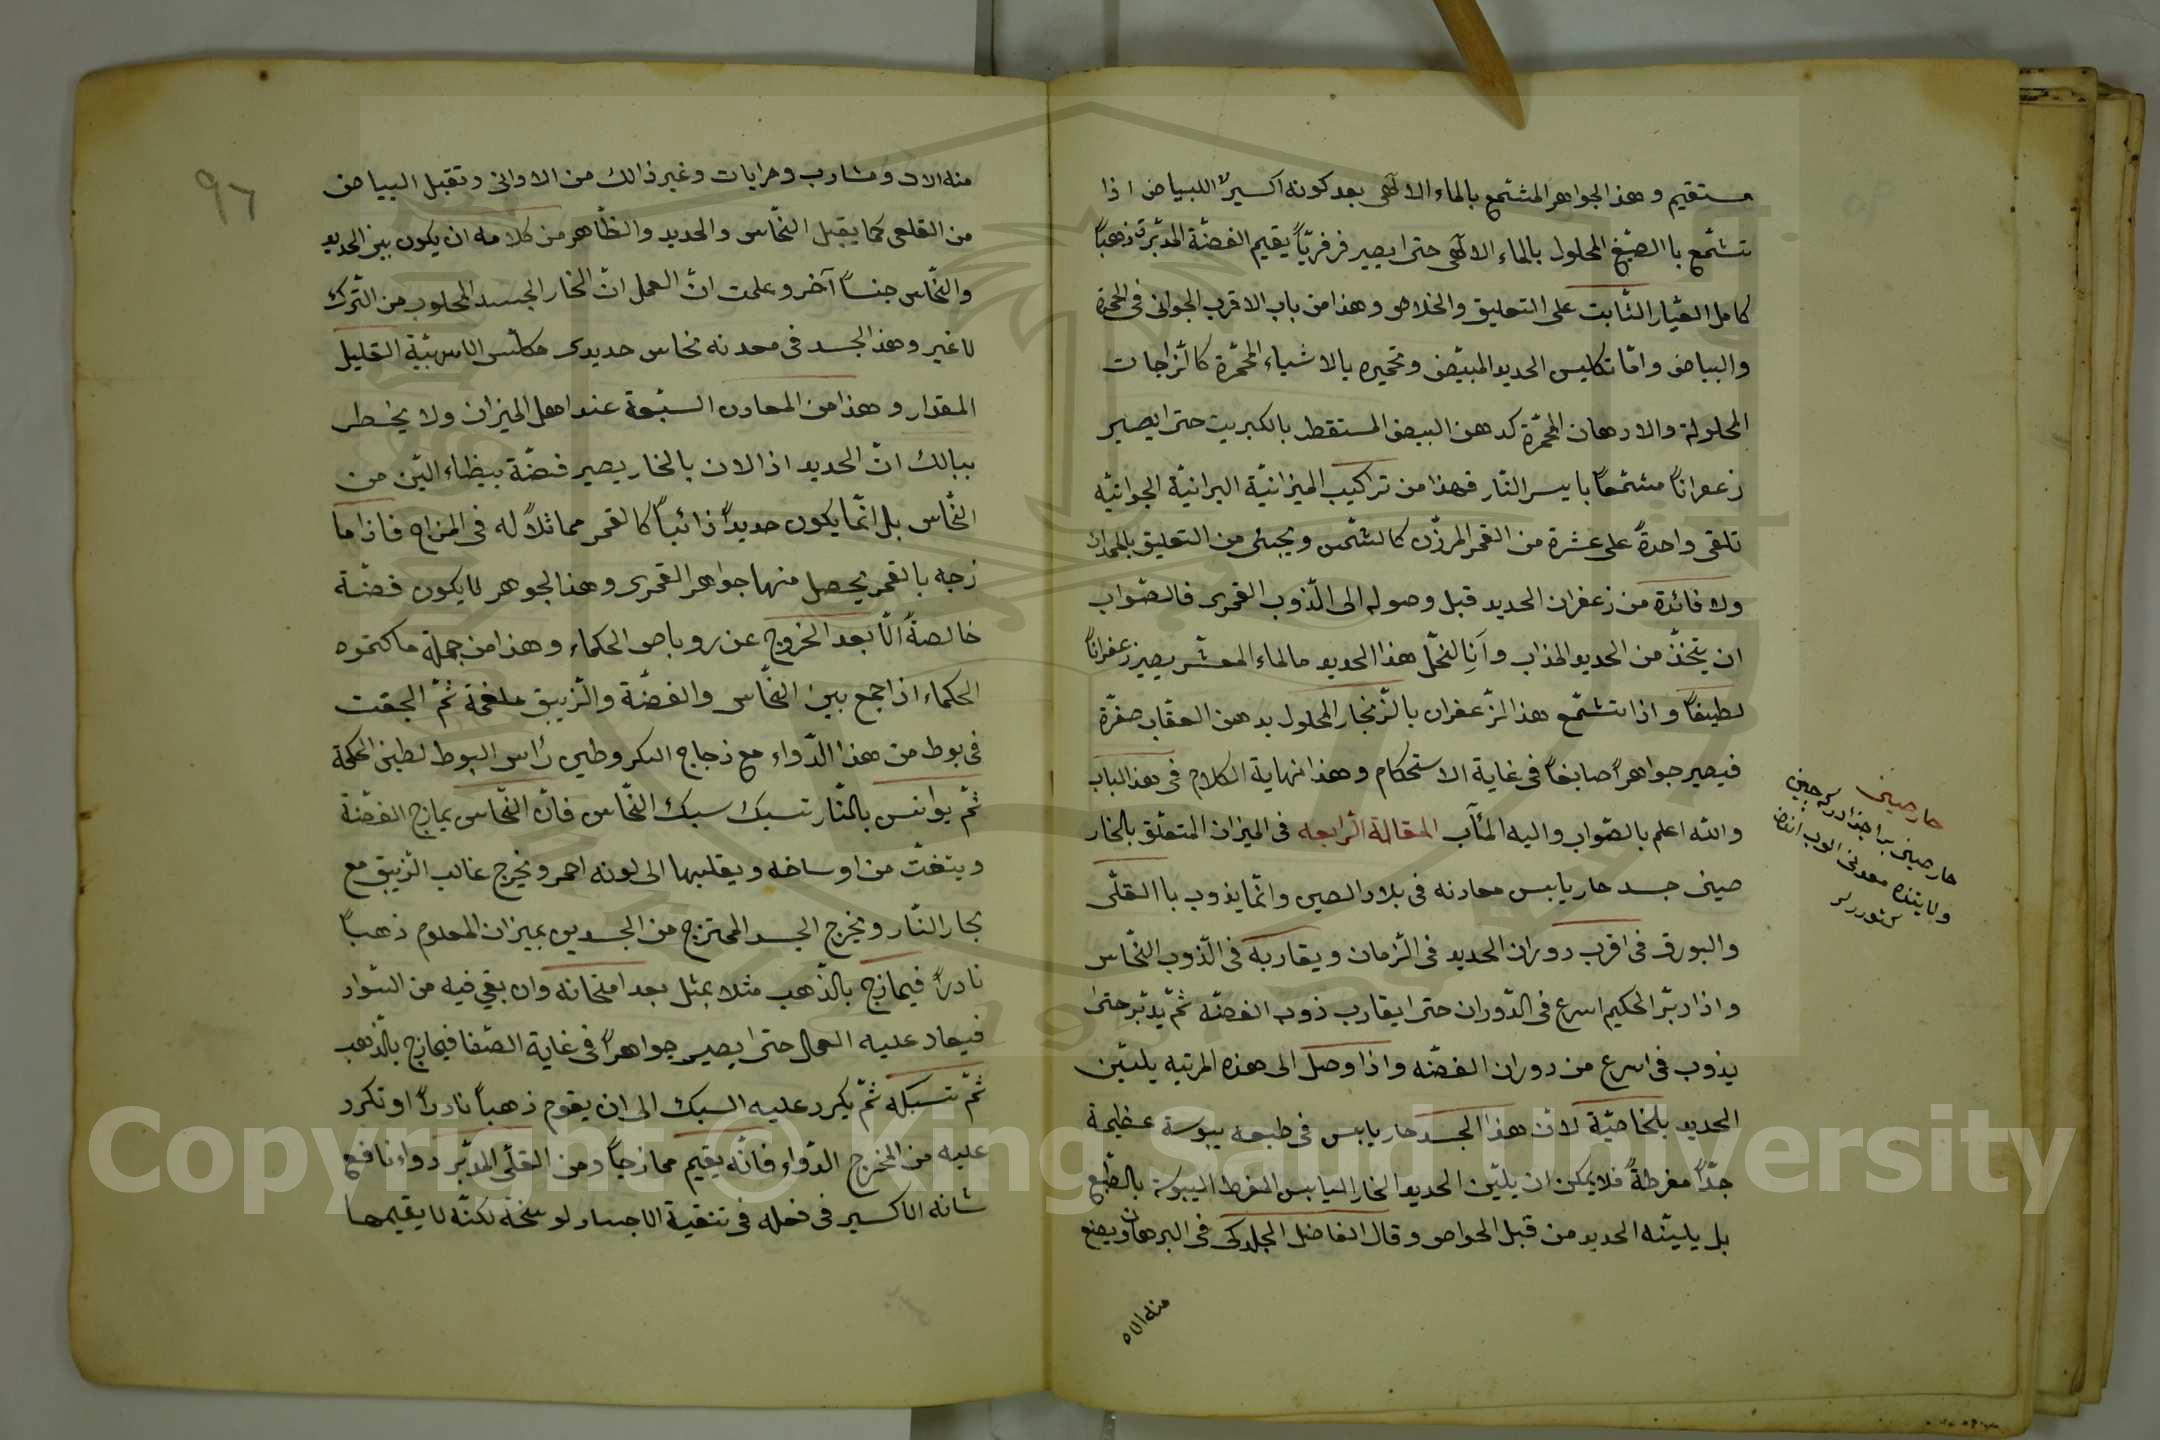 مستقيم وهذا الجواهر المشتمع بالماء الالهى بعد كونه اكسيرًا للبياض اذا
تشمّع باالصّبغ المحلول بالماء الالهى حتى ايصير فرفريّاً يقيم الفضّة المدبّرة ذهباً
كامل العيّار الثّابت على التعليق والخلاص وهذا من باب الاقرب الجوانى فى الحمرة
والبياض وامّا تكليس الحديد المبيّض وتحميره بالاشياء المحمّرة كالزّاجات
المحلولة والادهان المحمّرة كدهن البيض المستقطر بالكبريت حتى ايصير
زعفراناً مشمّعاً بايسر النّار فهذا من تراكيب الميزانيّة البرانيّة الجوانيّه
تلقى واحدةً على عشرة من القمر المرزّن كالشّمس ويجيئ من التعليق
ولا فائدة من زعفران الحديد قبل وصوله الى الذّوب القمرى فالصّواب
ان يتخذّ من الحديد المذاب وآن هذا الحديد مالماء المعشّر يصير زعفراناً
لطيفاً واذا تشمّع هذا الزّعفران بالزّنجار المحلول بدهن العقاب صفرّة
فيصير جواهراً صابغاً فى غاية الاستحكام وهذا نهاية الكلام فى هذا الباب
والله اعلم بالصّواب واليه المآب المقالة الرّابعه فى الميزان المتعلّق بالخار
صينى جسد حار يابس معادنه فى بلاد الصين وانّما يذوب باالقلّى
والبورق فى اقرب دوران الحديد فى الزّمان ويقاربه فى الذّوب النّحاس
واذا دبّر الحكيم اسرع فى الدّوران حتى ايقارب ذوب الفضّه ثمّ يدّبر حتى
يذوب فى اسرع من دوران الفضّه واذا وصل الى هذه المرتبه يليّن
الحديد بلخاصيّة لانّ هذا الجسد حار يابس فى طبعه يبوسة عظيمة
جدّاً مفرطةً فلا يمكن ان يليّن الحديد الخار اليابس المفرط اليبوسة بالطّبع
بل يليّنه الحديد من قبل الخواص وقال الفاضل الجلدكى فى البرهان ويصنع
منه الات
حار صينى
حار صينى
معدنى
منه الات ومشارب ومرايات وغير ذالك من الاوانى وتقبل البياض
من القلعى كما يقبل النّحاس والحديد والظّاهر من كلامه ان يكون بين الحديد
والنّحاس جنساً آخر وعلمت انّ العمل انّ الخار الجسد المجلوب من التّرك
لا غير وهذ الجسد فى معدنه نحاس حديدى القليل
المقدار وهذا من المعادن السبّعة عند اهل الميزان ولا يخطر
ببالك انّ الحديد اذا لان بالخار يصير فضّة بيظاء اليّن من
النّحاس بل انّما يكون حديداً ذائباً كالقمر مماثلاً له فى المزاج فاذا ما
زجه بالقمر يحصل منها جواهر القمرى وهذا لجوهر لا يكون فضّة
خالصةً الّا بعد الخروج عن روباص الحكماء وهذا من جملة ما كتموه
الحكماء اذا جمع بين النّحاس والفضّة والزّيبق ملغمة ثمّ الجقت
فى بوط من هذا الدّواء مع زجاج البكر وطين رأس البوط لطين الحكمة
ثمّ يوانس بالنّار تسبك سبك النّحاس فانّ النّحاس يمازج الفضّة
ويتفتّت من اوساخه ويقلبها الى لونه احمر ويخرج غالب الزّيبق مع
بخار النّار ويخرج الجسد الممتزج من الجسدين بميزان المعلوم ذهباً
نادراً فيمازج بالذّهب مثلا بمثل بعد امتحانه وان بقى فيه من السّواد
فيعاد عليه العمل حتى ايصير جواهراً فى غاية الصّفا فيمازج بالذّهب
ثمّ تسبكه ثمّ يكرر عليه السبك الى ان يقوم ذهباً نادراً او تكرر
عليه من المخرج الدّواء فانّه يقيم ممازجاً ومن القلّى المدبّر دواء نافع
شانه الاكسير فى فعله فى تنقية الاجساد لوسخة لكنّه لا يقيمها
٩٦